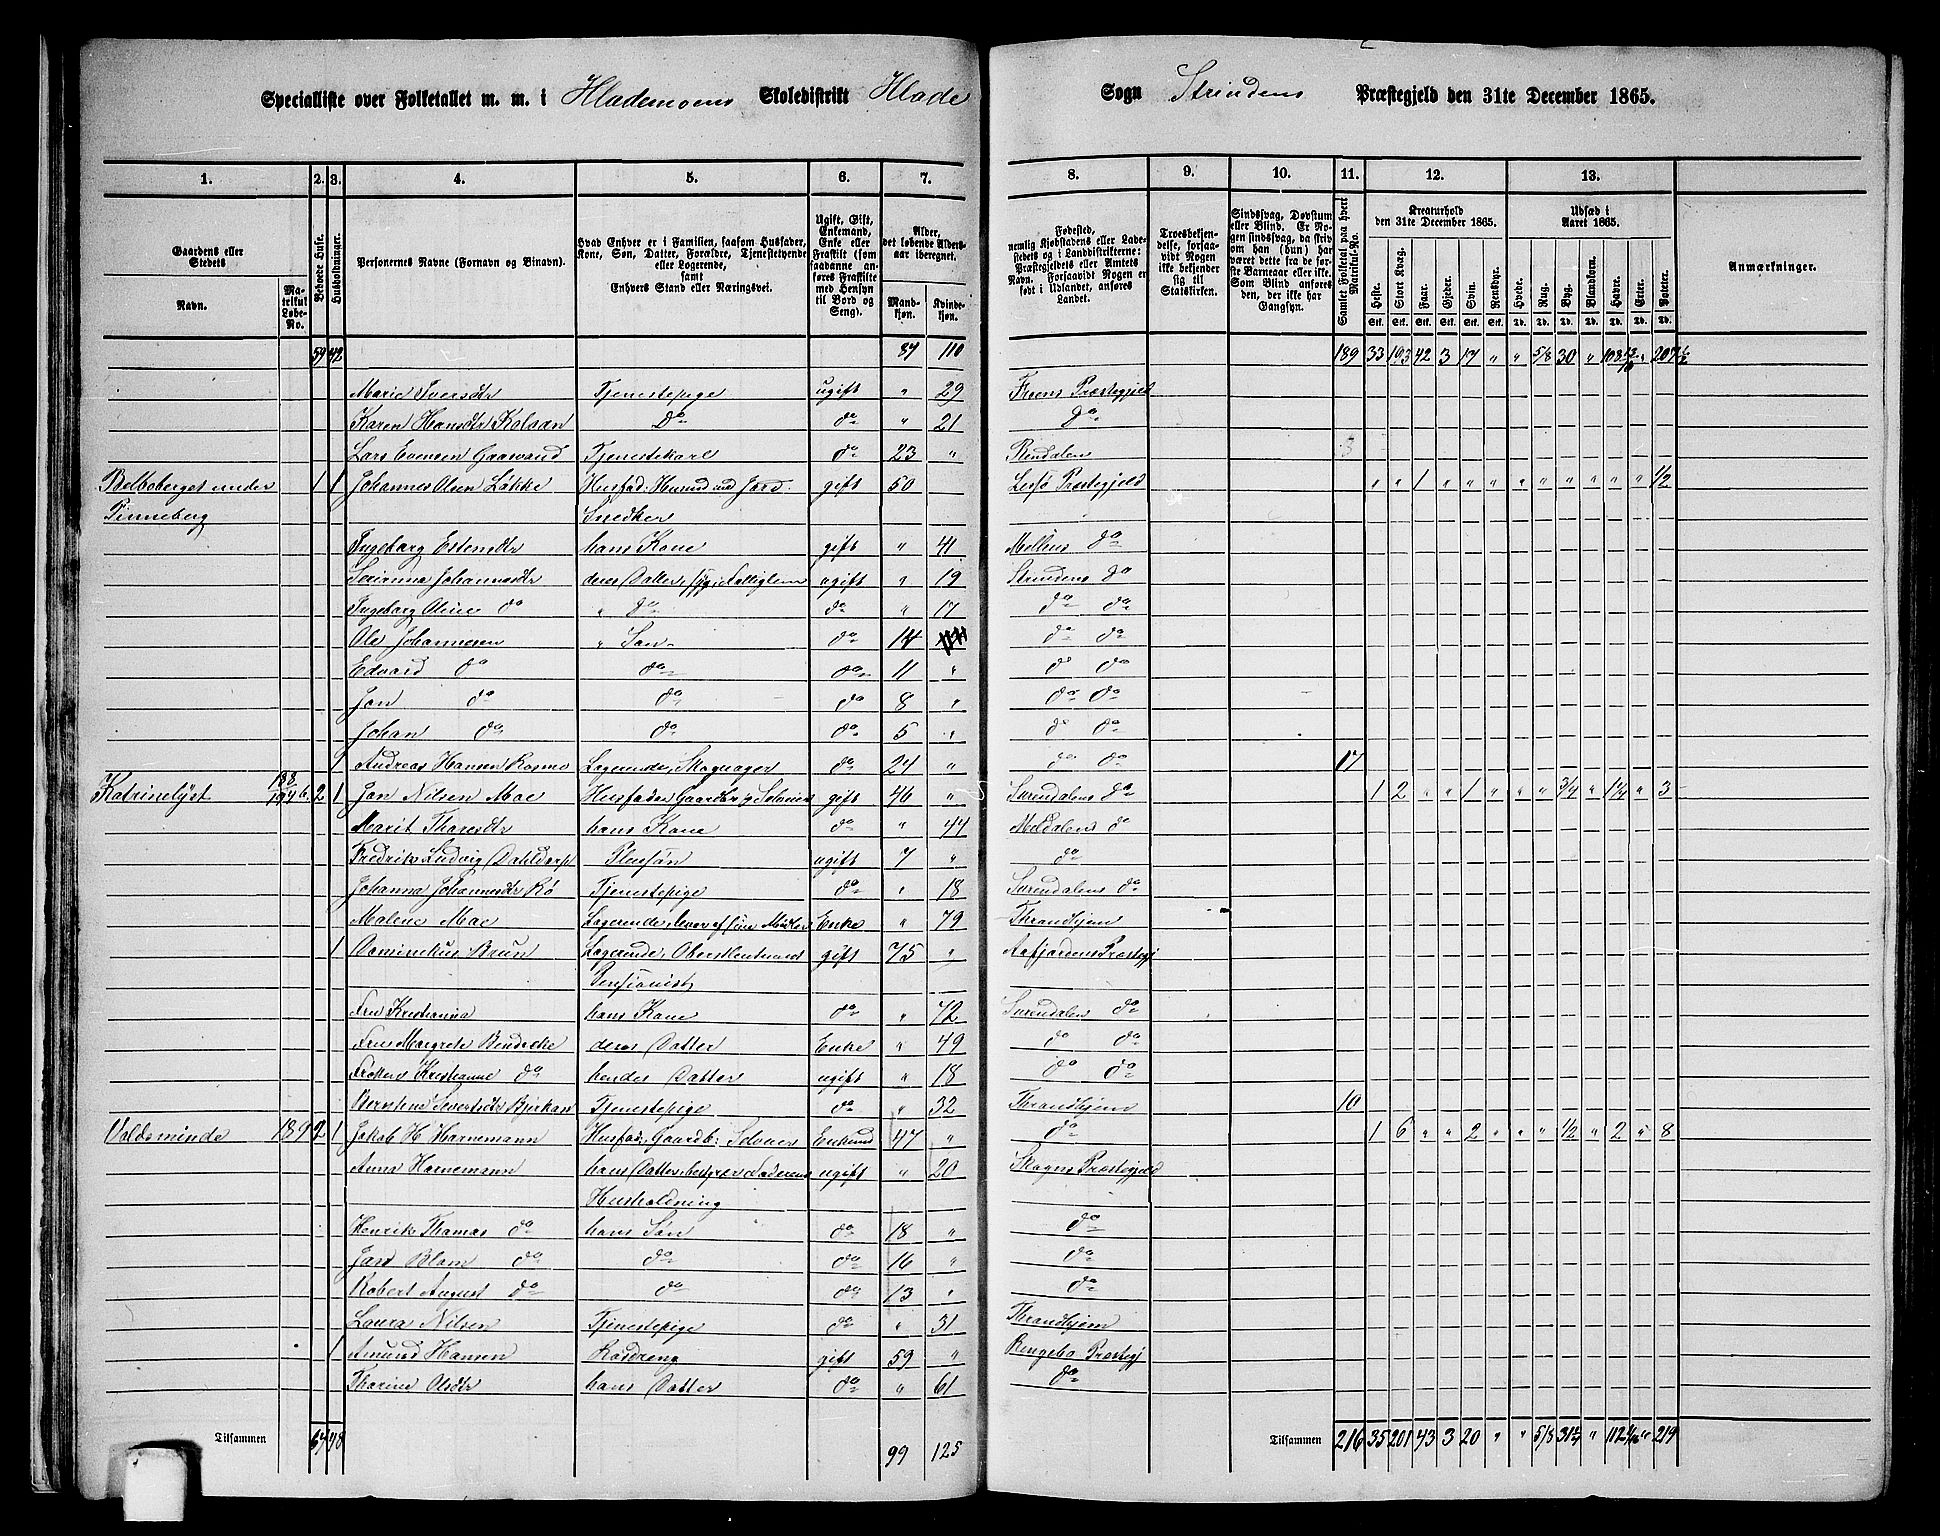 Specialliste over Folketallet m. m. i Hlademoens Skoledistrikt Hlade Sogn Strindens Præstegjeld den 31te December 1865.
1. 2. 3. 4. 5. 6. 7. 8. 9. 10. 11. 12. 13.
Gaardens eller Stedets
Navn.
Matrikul Løbe-No.
Beboede Huse.
Husholdninger.
Personernes Navne (Fornavn og Binavn).
Hvad Enhver er i Familien, saasom Husfader, Kone, Søn, Datter, Forældre, Tjenestetyende eller Logerende, samt Enhvers Stand eller Næringsvei.
Ugift, Gift, Enkemand, Enke eller Fraskilt (som saadanne anføres Fraskilte med Hensyn til Bord og Seng).
Alder, det løbende Aldersaar iberegnet.
Mandkjøn. Kvindekjøn.
Fødested, nemlig Kjøbstadens eller Ladestedets og i Landdistrikterne: Præstegjeldets eller Amtets Navn. Forsaavidt Nogen er født i Udlandet, anføres Landet.
Troesbekjendelse, forsaavidt Nogen ikke bekjender sig til Statskirken.
Sindssvag, Døvstum eller Blind. Er Nogen sindssvag, da skriv om han (hun) har været dette fra de første Barneaar eller ikke. Som Blind anføres den, der ikke har Gangsyn.
Samlet Folketal paa hvert Matrikul-No.
Kreaturhold den 31te December 1865.
Heste. Stort Kvæg. Faar. Gjeder. Svin. Rensdyr.
Udsæd i Aaret 1865.
Hvede. Rug. Byg. Blandkorn. Havre. Erter. Poteter.
Stk. Stk. Stk. Stk. Stk. Stk. Td. Td. Td. Td. Td. Td. Td.
Anmærkninger.
59 42 87 110 189 33 193 42 3 17 " " 5/8 30 "
Marie Iversdtr Tjenestepige ugift " 29 Præstegjeld
Karen Hansdtr Do do " 21 do
Lars Evensen Tjenestekarl do 23 " Rindalen
under 1 1 Johannes Olsen Løkke Husfad: Husmd med Jord: gift 50 Lesjø Præstegjeld " " 1 " " " " " " " " " 1/2
Tinneberg Snedker
Ingeborg Estensdtr hans Kone gift " 41 do
Johannesdtr deres Datter, ugift " 19 Strindens do
Ingeborg Oline do " do do " 17 do do
Ole Johannesen " Søn do 14 do do
Edvard do do do 11 " do do
Jon do do do 8 " do do
Johan do do do 5 " do do
Andreas Hansen Logerende, Skomager do 24 " do do 17
Katrinelyst 188 2 1 Jon Nilsen Moe Husfader, Gaardbr: Selveier gift 46 " Surendalens do 1 2 " " 1 " " " 3/4 " 1 1/4 " 3
Marit hans Kone do " 44 Meldalens do
Fredrik Ludvig Pleiesøn ugift 7 " do
Johanna Johannesdtr Tjenestepige do " 18 Surendalens do
Malene Moe Logerende, lever af sine Midler Enke " 79 Throndhjem
1 Brun Logerende, Oberstleutnant gift 75 " Aafjordens Præstegj
Pensionist
Fru Kristianna hans Kone do " 72 Surendalen do
Fru Margrete deres Datter Enke " 49 do do
Frøken Kristianne do hendes Datter ugift " 18 do do
Tjenestepige do " 32 Throndhjem 10
Voldsminde 189 2 1 Jakob H Hornemann Husfad, Gaardb: Selveier Enkemd 47 " do 1 6 " " 2 " " " 1/2 " 2 " 8
Anna Hornemann hans Datter, bestyrer Faderens ugift " 20 Skogns Præstegjeld
Husholdning
Henrik Thomas do hans Søn do 18 " do
Blom do do do 16 " do
Robert August do do do 13 " do
Laura Nilsen Tjenestepige do " 31 Throndhjem
1 Amund Hansen gift 59 " Ringebo Præstegj
Olsdtr hans Datter do " 61 do
Tilsammen 64 48 99 125 Tilsammen 216 35 201 43 3 20 " " 5/8 " 219